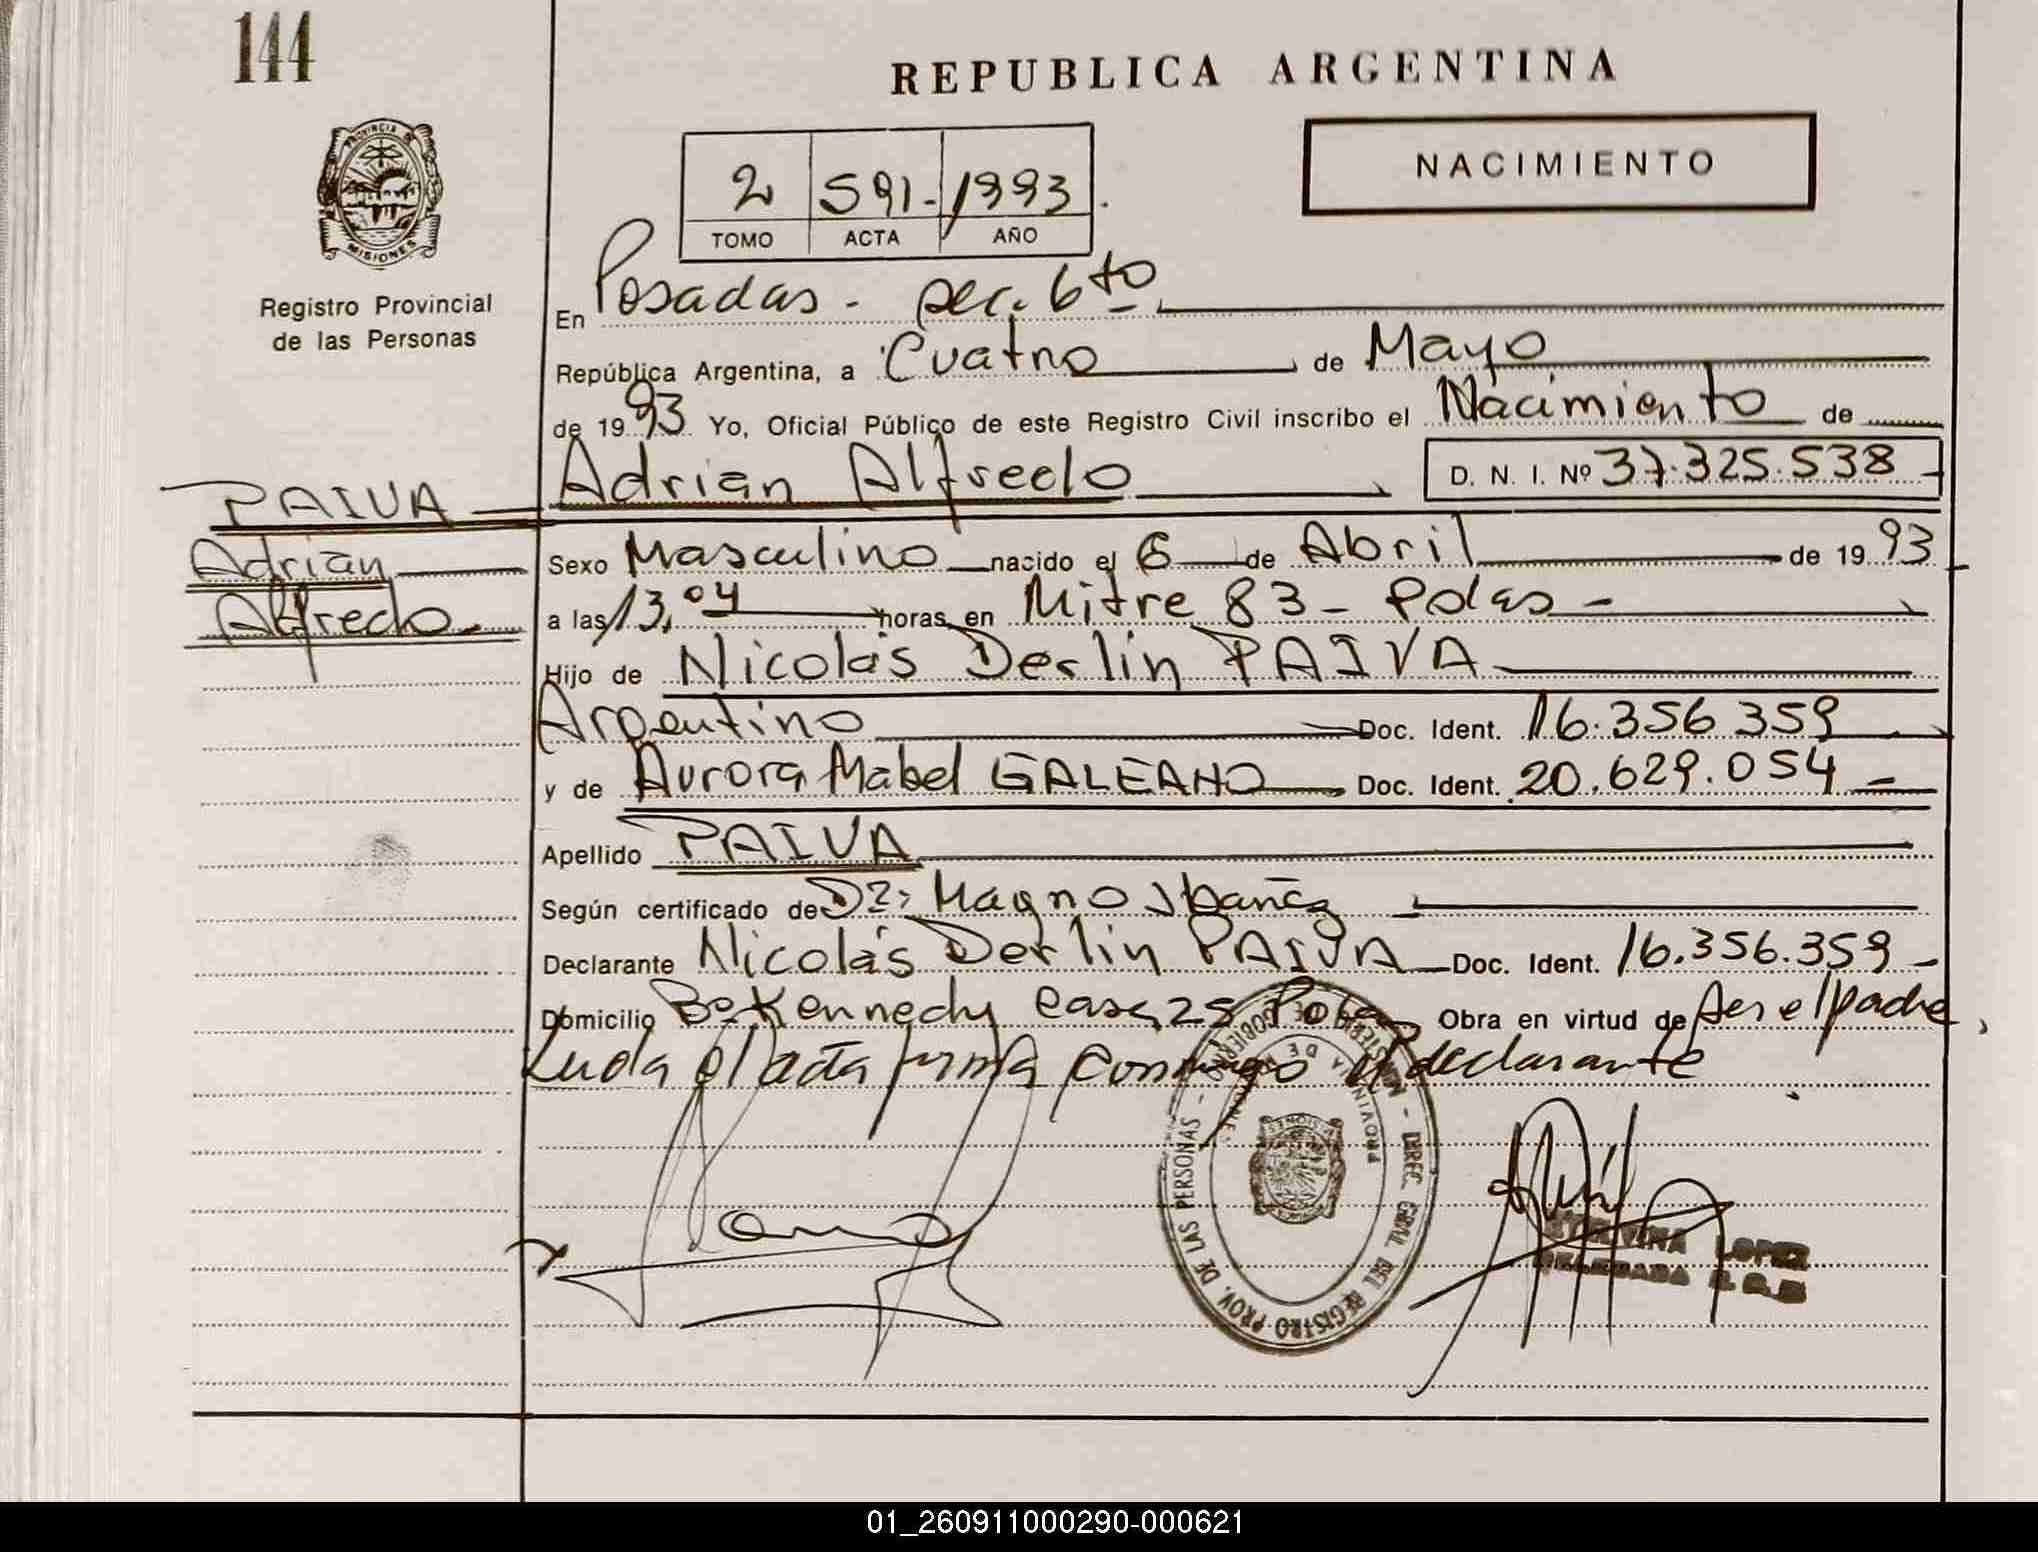 144
REPUBLICA ARGENTINA
NACIMIENTO
2 591- 1993.
TOMO ACTA AÑO
PROVINCIA DE
MISIONES
Registro Provincial
de las Personas
En Posadas - sec. 6to.
República Argentina, a Cuatro de Mayo
de 1993 Yo, Oficial Público de este Registro Civil inscribo el Nacimiento de
Adrian Alfredo D. N. I. Nº 37.325.538
PAIVA
Adrian
Alfredo
Sexo Masculino nacido el 6 de Abril de 1993
a las 13,04 horas en Mitre 83 - Pdas -
Hijo de Nicolás Derlin PAIVA
Argentino Doc. Ident. 16.356.359
y de Aurora Mabel GALEANO Doc. Ident. 20.629.054
Apellido PAIVA
Según certificado de Dr: Magno Ibañez
Declarante Nicolás Derlin PAIVA Doc. Ident. 16.356.359
Domicilio Bo Kennedy casa 25 Obra en virtud de Ser el padre
Leida el acta firma conmigo el declarante
DIREC. GRAL. DEL REGISTRO PROV. DE LAS PERSONAS -
LOPEZ
DELEGADA
01_260911000290-000621